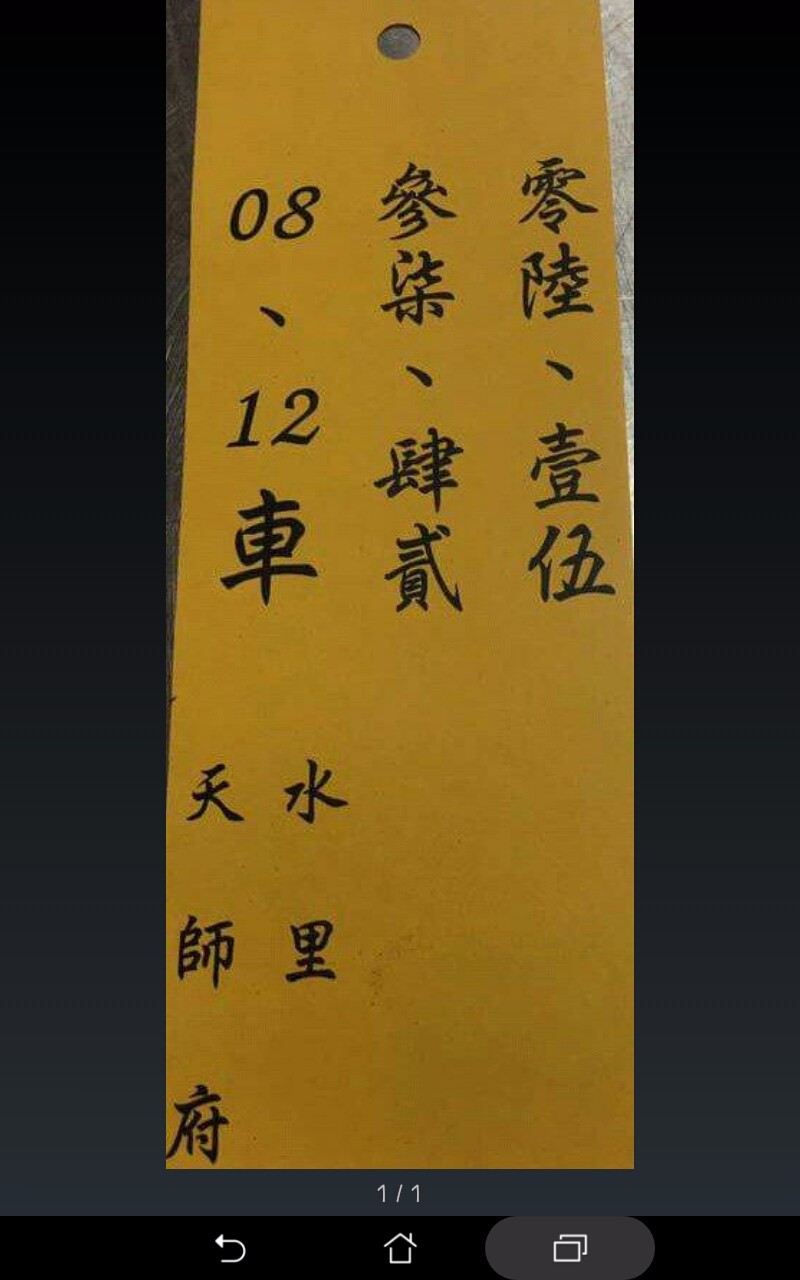 零陸、壹伍
參柒、肆貳
08、12車
水里
天師府
1/1